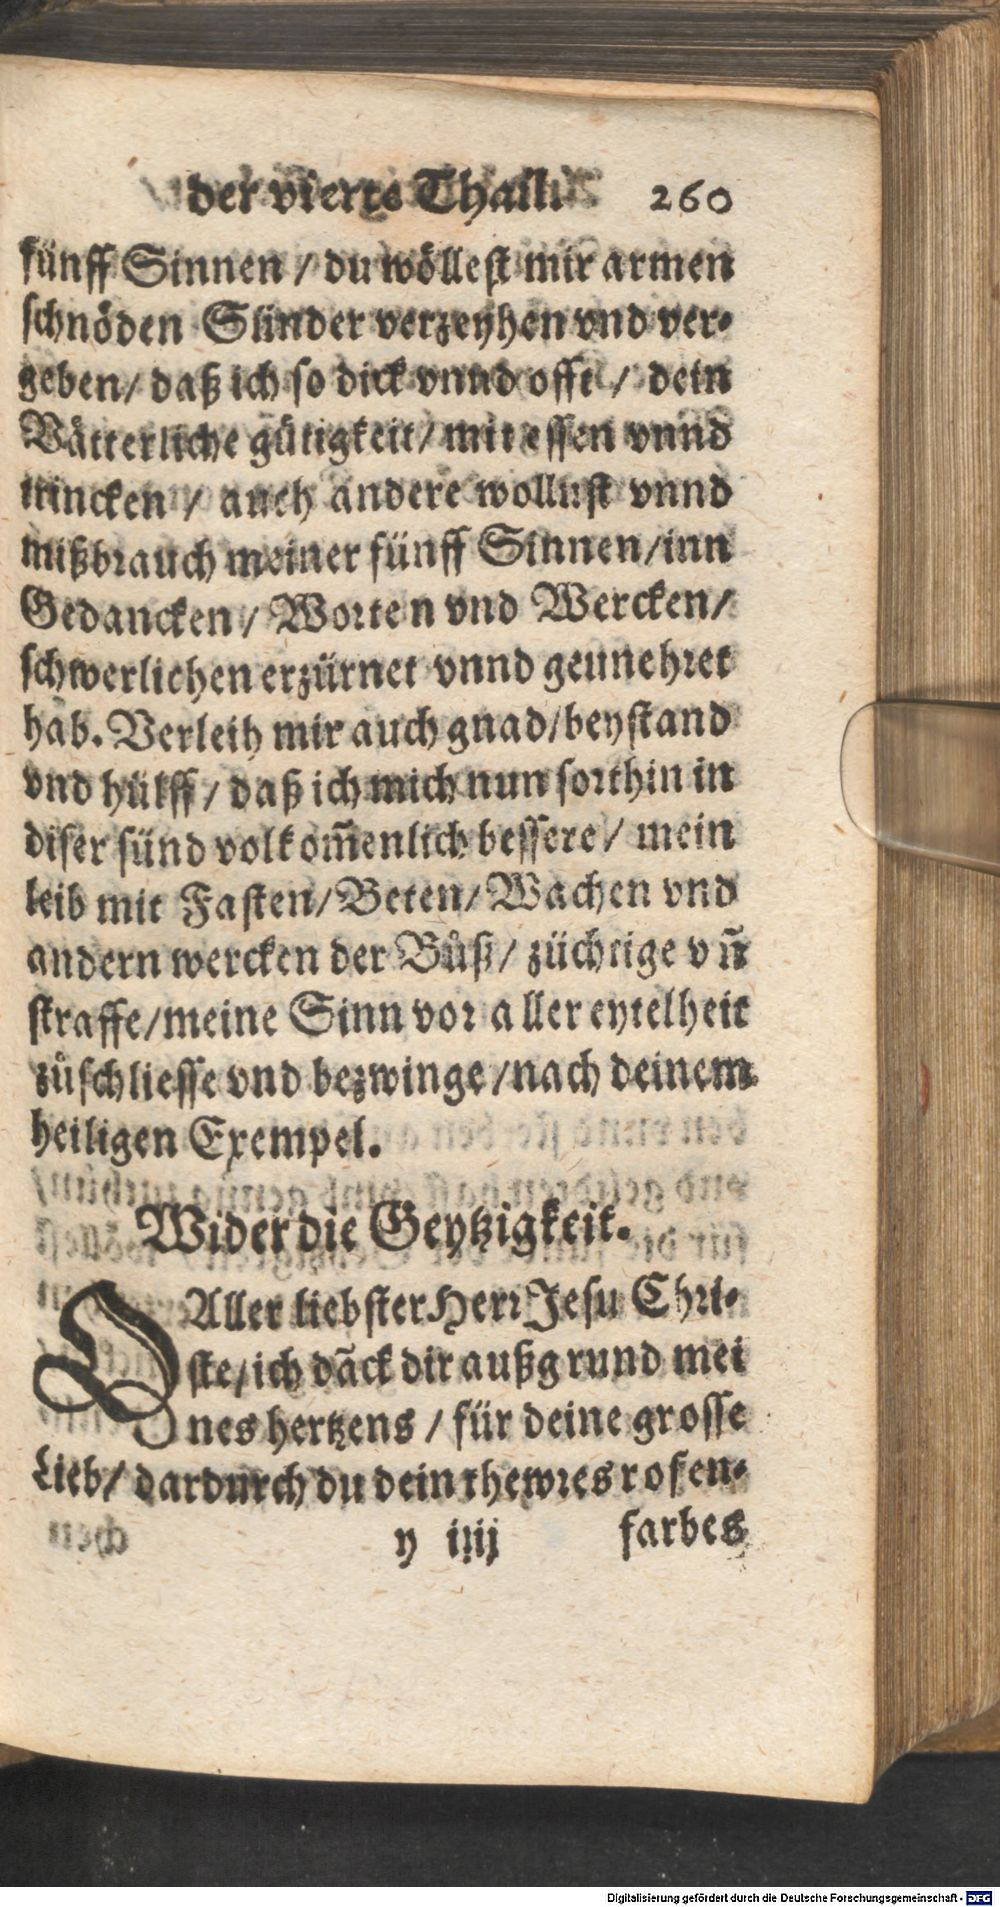 der vierte Thail. 260
fünff Sinnen / du wöllest mir armen
schnöden Sünder verzeyhen vnd ver-
geben/ daß ich so dick vnnd offt / dein
Vätterliche gütigkeit/ mit essen vnnd
trincken / auch andere wollust vnnd
mißbrauch meiner fünff Sinnen/inn
Gedancken/ Worten vnd Wercken/
schwerlichen erzürnet vnnd geunehret
hab. Verleih mir auch gnad/beystand
vnd hülff/ daß ich mich nun forthin in
diser sünd volkom̃enlich bessere/ mein
leib mit Fasten/Beten/Wachen vnd
andern wercken der Bůß/ züchtige vñ
straffe/meine Sinn vor aller eytelheit
zůschliesse vnd bezwinge/nach deinem
heiligen Exempel.
Wider die Geytzigkeit.
O Aller liebster Herr Jesu Chri-
ste/ich dãck dir auß grund mei
nes hertzens / für deine grosse
Lieb/ dardurch du dein thewres rosen-
y iiij farbes
Digitalisierung gefördert durch die Deutsche Forschungsgemeinschaft - DFG